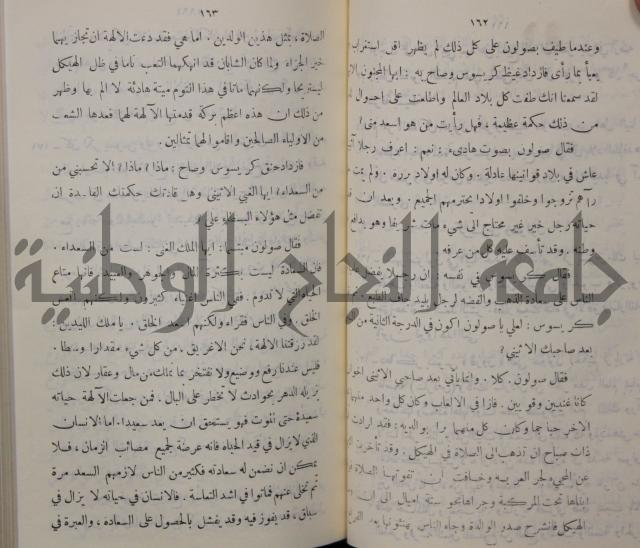 ١٦٢
وعندما طيف بصولون على كل ذلك لم يظهر اقل استغراب
يعبأ بما رأى فازداد غيظ كريسوس وصاح به : ايها المجنون
لقد سمعنا انك طفت كل بلاد العالم واطلعت على احوال
من ذلك حكمة عظيمة ، فهل رأيت من هو اسعد مني؟
فقال صولون بصوت هادىء : نعم : اعرف رجلا
عاش في بلاد قوانينها عادلة . وكان له اولاد بررة . ولم يمت
رآهم تزوجوا وخلفوا اولادا يحترمهم الجميع . وبعد ان
حياته رجل خير غير محتاج الى شيء مات شريفا وهو يدافع
وطنه . وقد تأسف عليه كل من عرفه
فقال كريسوس في نفسه : ان رجلا يفضل
الناس على سعادة الذهب والفضة لرجل بليد جاف الطبع
كريسوس : املي يا صولون اكون في الدرجة الثانية من
بعد صاحبك الاثيني ؟
فقال صولون . كلا . وانما يأتي بعد صاحبي الاثيني اخوان
كانا غنيين وقويين . فازا في الالعاب وكان كل واحد منهما
الآخر حبا جما وكان كل منهما برا بوالديه : فقد ارادت
ذات صباح ان تذهب الى الصلاة في الهيكل . وقد تأخرت
عن المجيء لجر العربة وخافت ان تفوتها الصلاة
ابناها تحت المركبة وجراها نحو ستة اميال الى ان
الهيكل فانشرح صدر الوالدة وجاء الناس يهنئونها بعد
١٦٣
الصلاة ، بمثل هذين الولدين . اما هي فقد دعت الآلهة ان تجازيهما
خير الجزاء ولما كان الشابان قد انهكهما التعب ناما في ظل الهيكل
ليستريحا ولكنهما ماتا في هذا النوم ميتة هادئة لا الم بها وظهر
من ذلك ان هذه اعظم بركة قدمتها الآلهة لهما فعدها الشعب
من الاولياء الصالحين واقاموا لهما تمثالين .
فازداد حنق كريسوس وصاح : ماذا ؟ ماذا ؟ الا تحسبني من
السعداء؟ ايها الغبي الاثيني وهل قادتك حكمتك الفاسدة ان
تفضل مثل هؤلاء البسطاء علي ؟
فقال صولون مبتسما : ايها الملك الغني : لست من السعداء .
فان السعادة ليست بكثرة المال والجوهر والعبيد . فانها متاع
الحياة التي لا تدوم . ففي الناس اغنياء كثيرون ولكنهم اتعس
الخلق . وفي الناس فقراء ولكنهم اسعد الخلق . يا ملك الليديين :
لقد رزقتنا الآلهة ، نحن الاغريق ، من كل شيء مقدارا وسطا .
فليس عندنا رفيع ووضيع ولا نفتخر بما نملك من مال وعقار لان ذلك
يزيله الدهر بحوادث لا تخطر على البال . فمن جعلت الآلهة حياته
سعيدة حتى الموت فهو يستحق ان يعد سعيدا . اما الانسان
الذي لا يزال في قيد الحياة فانه عرضة لجميع مصائب الزمان ، فلا
يمكن ان نضمن له سعادته فكثير من الناس لازمهم السعد مرة
ثم تخلى عنهم فماتوا في اشد التعاسة . فالانسان في حياته لا يزال في
سباق ، قد يفوز فيه وقد يفشل بالحصول على السعادة ، والعبرة في
جامعة النجاح الوطنية